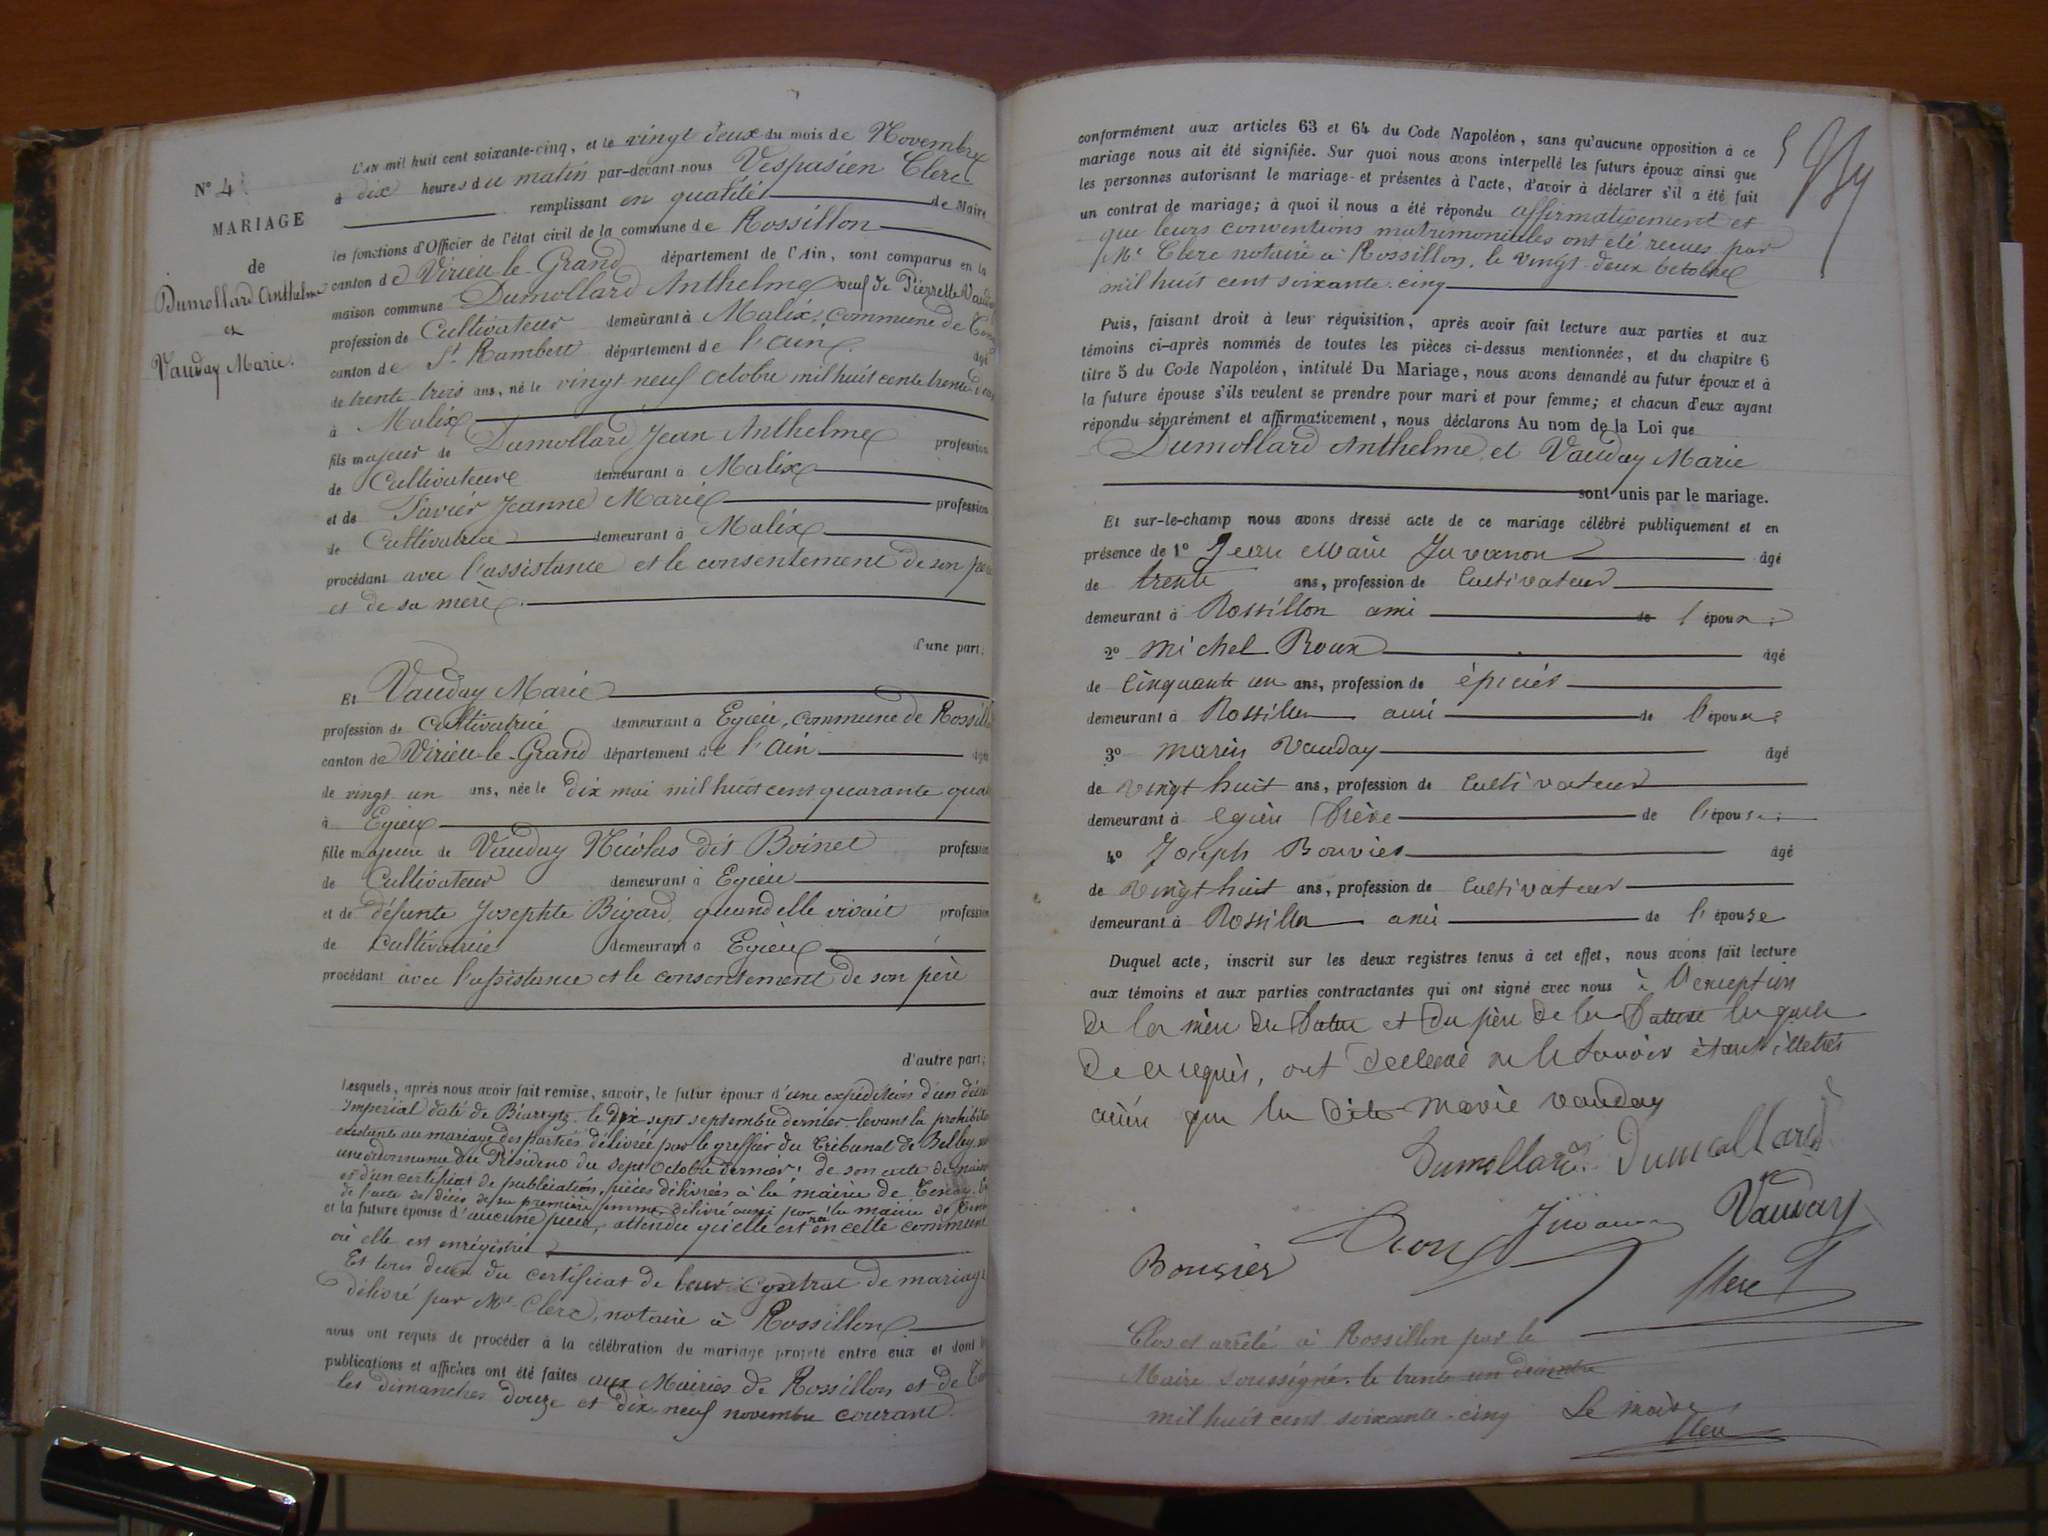 N° 4
MARIAGE
de
Dumollard Anthelme
et
Vauday Marie.
L'AN mil huit cent soixante-cinq, et le vingt deux du mois de Novembre
à dix heures du matin par-devant nous Vespasien Clerc
remplissant en qualité de Maire
les fonctions d'Officier de l'état civil de la commune de Rossillon
canton de Virieu-le-Grand département de l'Ain, sont comparus en la
maison commune Dumollard Anthelme veuf de Pierrette Vauday
profession de Cultivateur demeurant à Malix, commune de
canton de St Rambert département de l'ain âgé
de trente-trois ans, né le vingt neuf Octobre mil huit cent trente deux
à Malix
fils majeur de Dumollard Jean Anthelme profession
de Cultivateur demeurant à Malix
et de Savier Jeanne Marie profession
de Cultivatrice demeurant à Malix
procédant avec l'assistance et le consentement de son père
et de sa mère.
d'une part;
Et Vauday Marie
profession de cultivatrice demeurant à Egieu, commune de Rossillon
canton de Virieu-le-Grand département de l'Ain
de vingt un ans, née le dix mai mil huit cent quarante quatre
à Egieu
fille majeure de Vauday Nicolas dit Boinet profession
de Cultivateur demeurant à Egieu
et de défunte Josephte Bigard, quand elle vivait profession
de cultivatrice demeurant à Egieu
procédant avec l'assistance et le consentement de son père
d'autre part;
Lesquels, après nous avoir fait remise, savoir, le futur époux d'une expédition d'un décret
Impérial daté de Biarrytz le dix sept septembre dernier levant la prohibition
existante au mariage des parties délivrée par le greffier du Tribunal de Belley,
une ordonnance du Président du sept Octobre dernier; de son acte de naissance
et d'un certificat de publication, pièces délivrées à la mairie de Tenay.
de l'acte de décès de sa première femme, délivré aussi par la mairie de Tenay
et la future épouse d'aucune pièce, attendu qu'elle est née en cette commune
où elle est enregistrée
Et tous deux du certificat de leur Contrat de mariage
délivré par Me Clerc, notaire à Rossillon
nous ont requis de procéder à la célébration du mariage projeté entre eux et dont les
publications et affiches ont été faites aux Mairies de Rossillon et de
les dimanches douze et dix-neuf novembre courant.
conformément aux articles 63 et 64 du Code Napoléon, sans qu'aucune opposition à ce
mariage nous ait été signifiée. Sur quoi nous avons interpellé les futurs époux ainsi que
les personnes autorisant le mariage et présentes à l'acte, d'avoir à déclarer s'il a été fait
un contrat de mariage; à quoi il nous a été répondu affirmativement et
que leurs conventions matrimoniales ont été reçues par
Me Clerc notaire à Rossillon, le vingt-deux Octobre
mil huit cent soixante-cinq
Puis, faisant droit à leur réquisition, après avoir fait lecture aux parties et aux
témoins ci-après nommés de toutes les pièces ci-dessus mentionnées, et du chapitre 6
titre 5 du Code Napoléon, intitulé Du Mariage, nous avons demandé au futur époux et à
la future épouse s'ils veulent se prendre pour mari et pour femme; et chacun d'eux ayant
répondu séparément et affirmativement, nous déclarons Au nom de la Loi que
Dumollard Anthelme et Vauday Marie
sont unis par le mariage.
Et sur-le-champ nous avons dressé acte de ce mariage célébré publiquement et en
présence de 1° Jean Marie Juvanon âgé
de trente ans, profession de Cultivateur
demeurant à Rossillon ami de l'époux;
2° Michel Roux âgé
de Cinquante un ans, profession de épicier
demeurant à Rossillon ami de l'époux;
3° Marin Vauday âgé
de vingt huit ans, profession de cultivateur
demeurant à Egieu frère de l'épouse;
4° Joseph Bouvier âgé
de vingt huit ans, profession de cultivateur
demeurant à Rossillon ami de l'épouse
Duquel acte, inscrit sur les deux registres tenus à cet effet, nous avons fait lecture
aux témoins et aux parties contractantes qui ont signé avec nous à l'exception
de la mère du futur et du père de la future lesquels
de ce requis, ont déclaré ne le savoir étant illettrés
ainsi que la dite Marie Vauday
Dumollard Dumollard
Juvanon Vauday
Bouvier
Clerc
Clos et arrêté à Rossillon par le
Maire soussigné le trente un décembre
mil huit cent soixante-cinq Le maire
Clerc